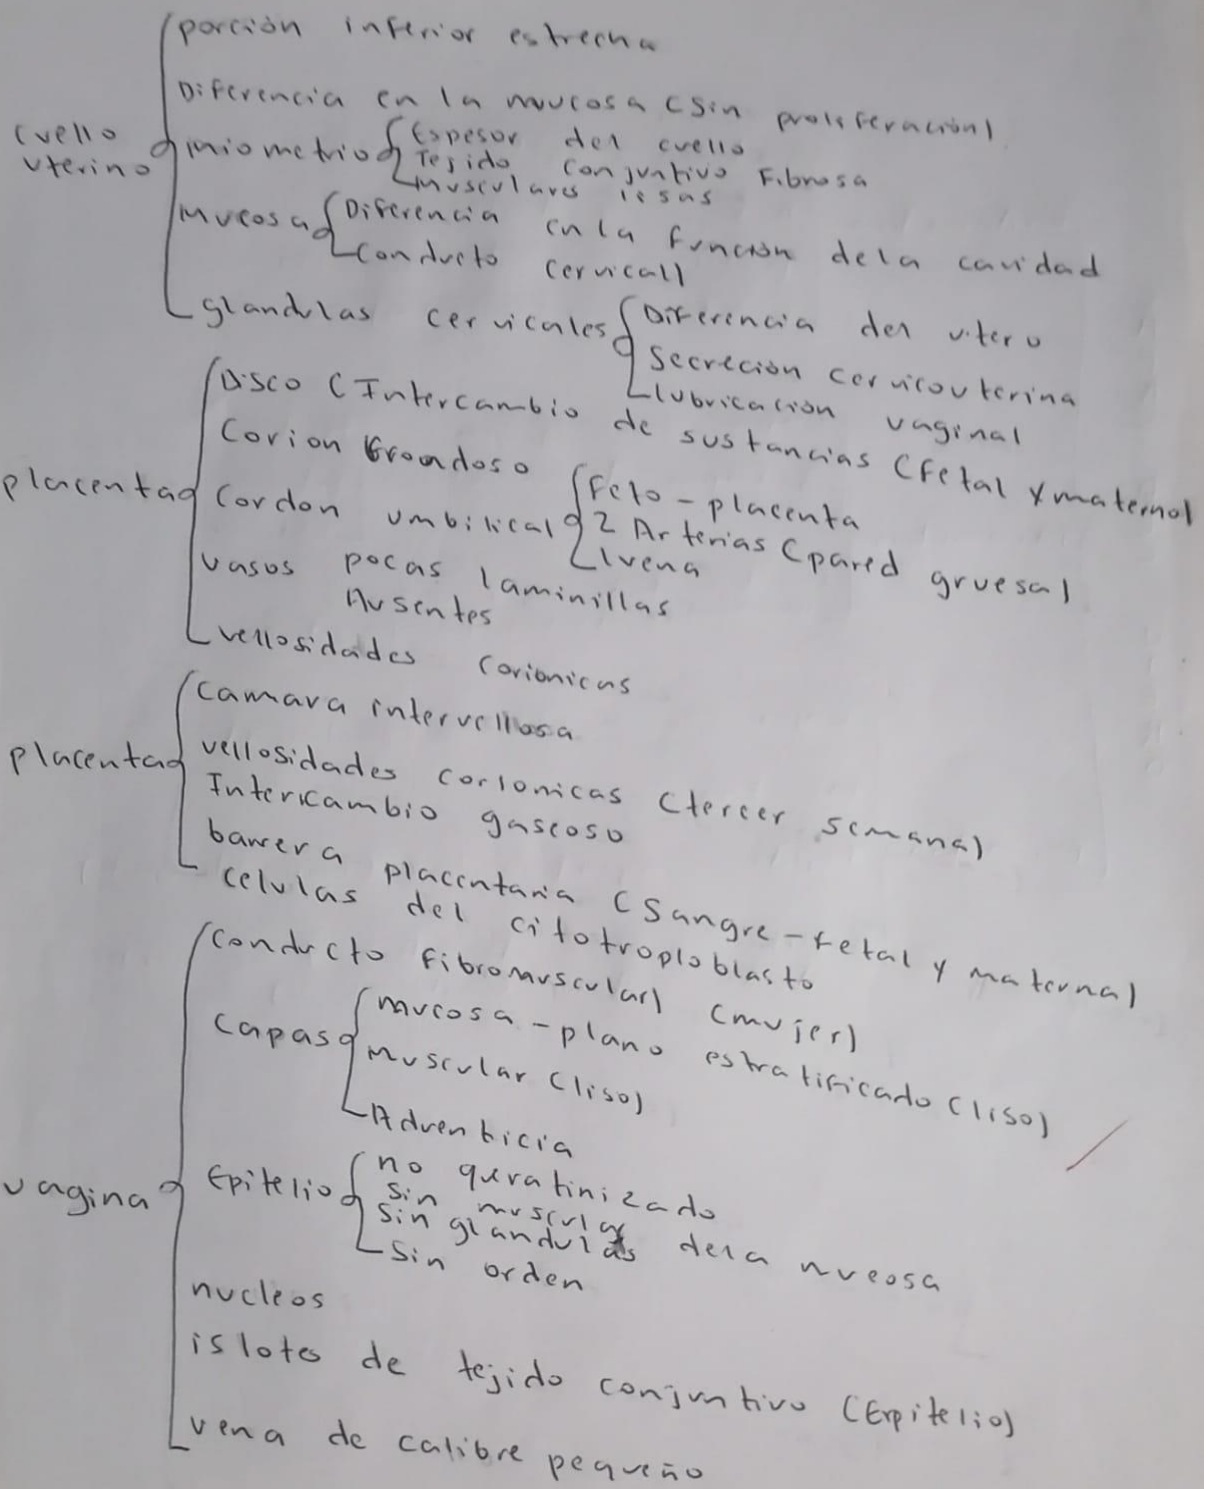 porción inferior estrecha
Diferencia en la mucosa (sin proliferación)
cuello uterino
miometrio
Espesor del cuello
Tejido conjuntivo Fibrosa
musculares lisas
Mucosa
Diferencia en la función dela cavidad
Conducto cervical)
glandulas cervicales
Diferencia del utero
Secreción cervicouterina
lubricación vaginal
placenta
Disco (Intercambio de sustancias (Fetal y maternol
Corion Groondoso
Cordon umbilical
Feto - placenta
2 Arterias (pared gruesa)
1 vena
vasos pocas laminillas
Ausentes
vellosidades corionicas
placenta
camara intervellosa
vellosidades corionicas (tercer semana)
Intercambio gaseoso
barrera placentaria (Sangre - fetal y maternal)
celulas del citotroploblasto
vagina
Conducto Fibromuscular) (mujer)
Capas
mucosa - plano estratificado (liso)
Muscular (liso)
Adventicia
Epitelio
no queratinizado
sin muscular dela mucosa
sin glandulas
sin orden
nucleos
islotes de tejido conjuntivo (Epitelio)
vena de calibre pequeño